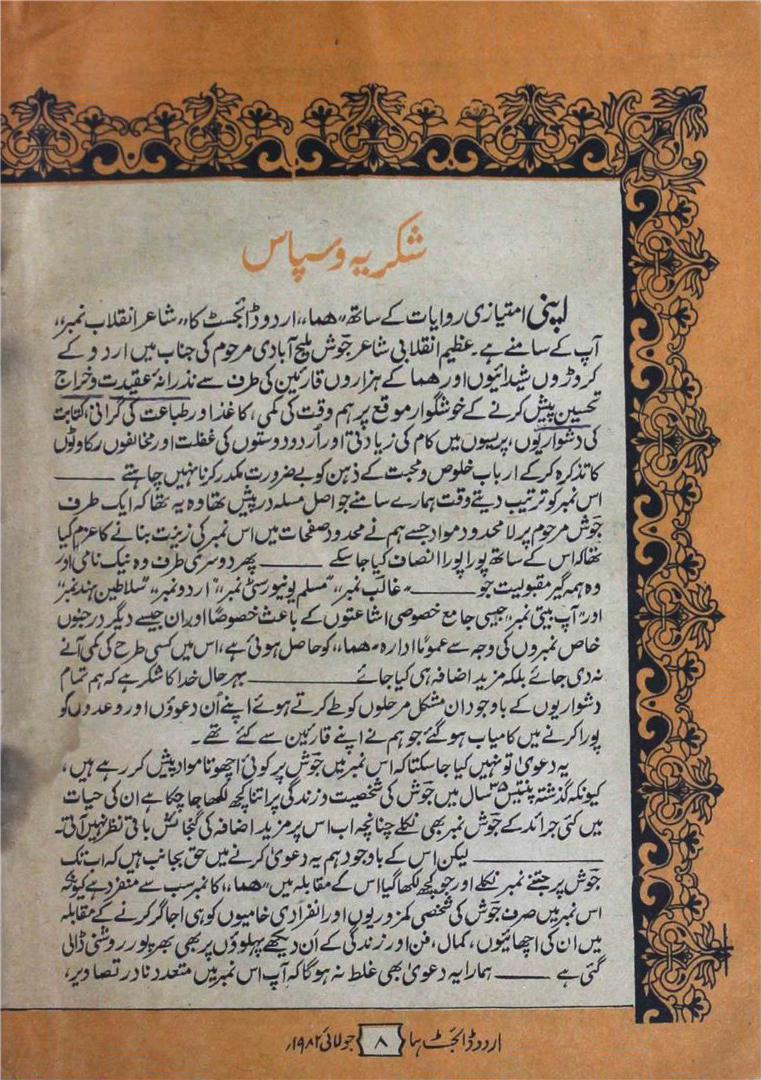 شکریہ و سپاس
اپنی امتیازی روایات کے ساتھ "ھما،، اردو ڈائجسٹ کا "شاعر انقلاب نمبر،،
آپ کے سامنے ہے۔ عظیم انقلابی شاعر جوشؔ ملیح آبادی مرحوم کی جناب میں اردو کے
کروڑوں شیدائیوں اور ھما کے ہزاروں قارئین کی طرف سے نذرانۂ عقیدت و خراج
تحسین پیش کرنے کے خوشگوار موقع پر ہم وقت کی کمی، کاغذ اور طباعت کی گرانی، کتابت
کی دشواریوں، پریسوں میں کام کی زیادتی اور اُردو دوستوں کی غفلت اور مخالفوں رکاوٹوں
کا تذکرہ کر کے ارباب خلوص و محبت کے ذہن کو بے ضرورت مکدر کرنا نہیں چاہتے ——
اس نمبر کو ترتیب دیتے وقت ہمارے سامنے جو اصل مسلہ درپیش تھا وہ یہ تھا کہ ایک طرف
جوش مرحوم پر لا محدود مواد جسے ہم نے محدود صفحات میں اس نمبر کی زینت بنانے کا عزم کیا
تھا کہ اس کے ساتھ پورا پورا انصاف کیا جا سکے —— پھر دوسری طرف وہ نیک نامی اور
وہ ہمہ گیر مقبولیت جو —— "غالب نمبر،، "مسلم یونیورسٹی نمبر،، "اردو نمبر،، "سلاطین ہند نمبر"
اور "آپ بیتی نمبر،، جیسی جامع خصوصی اشاعتوں کے باعث خصوصًا اور ان جیسے دیگر درجنوں
خاص نمبروں کی وجہ سے عمومًا ادارہ "ھما،، کو حاصل ہوئی ہے، اس میں کسی طرح کی کمی آنے
نہ دی جائے بلکہ مزید اضافہ ہی کیا جائے —— بہر حال خدا کا شکر ہے کہ ہم تمام
دشواریوں کے باوجود ان مشکل مرحلوں کو طے کرتے ہوئے اپنے اُن دعوؤں اور وعدوں کو
پورا کرنے میں کامیاب ہو گئے جو ہم نے اپنے قارئین سے کئے تھے۔
یہ دعویٰ تو نہیں کیا جا سکتا کہ اس نمبر میں جوش پر کوئی اچھوتا مواد پیش کر رہے ہیں،
کیونکہ گذشتہ پینتیس ۳۵ سال میں جوش کی شخصیت و زندگی پر اتنا کچھ لکھا جا چکا ہے ان کی حیات
میں کئی جرائد کے جوش نمبر بھی نکلے چنانچہ اب اس پر مزید اضافہ کی گنجائش باقی نظر نہیں آتی۔
—— لیکن اس کے باوجود ہم یہ دعویٰ کرنے میں حق بجانب ہیں کہ اب تک
جوش پر جتنے نمبر نکلے اور جو کچھ لکھا گیا اس کے مقابلہ میں "ھما،، کا نمبر سب سے منفرد ہے کیونکہ
اس نمبر میں صرف جوش کی شخصی کمزوریوں اور انفرادی خامیوں کو ہی اجاگر کرنے کے مقابلہ
میں ان کی اچھائیوں، کمال، فن اور زندگی کے اُن دیکھے پہلوؤں پر بھی بھرپور روشنی ڈالی
گئی ہے —— ہمارا یہ دعویٰ بھی غلط نہ ہوگا کہ آپ اس نمبر میں متعدد نادر تصاویر،
اردو ڈائجسٹ ہما ۸ جولائی ۱۹۸۲ء